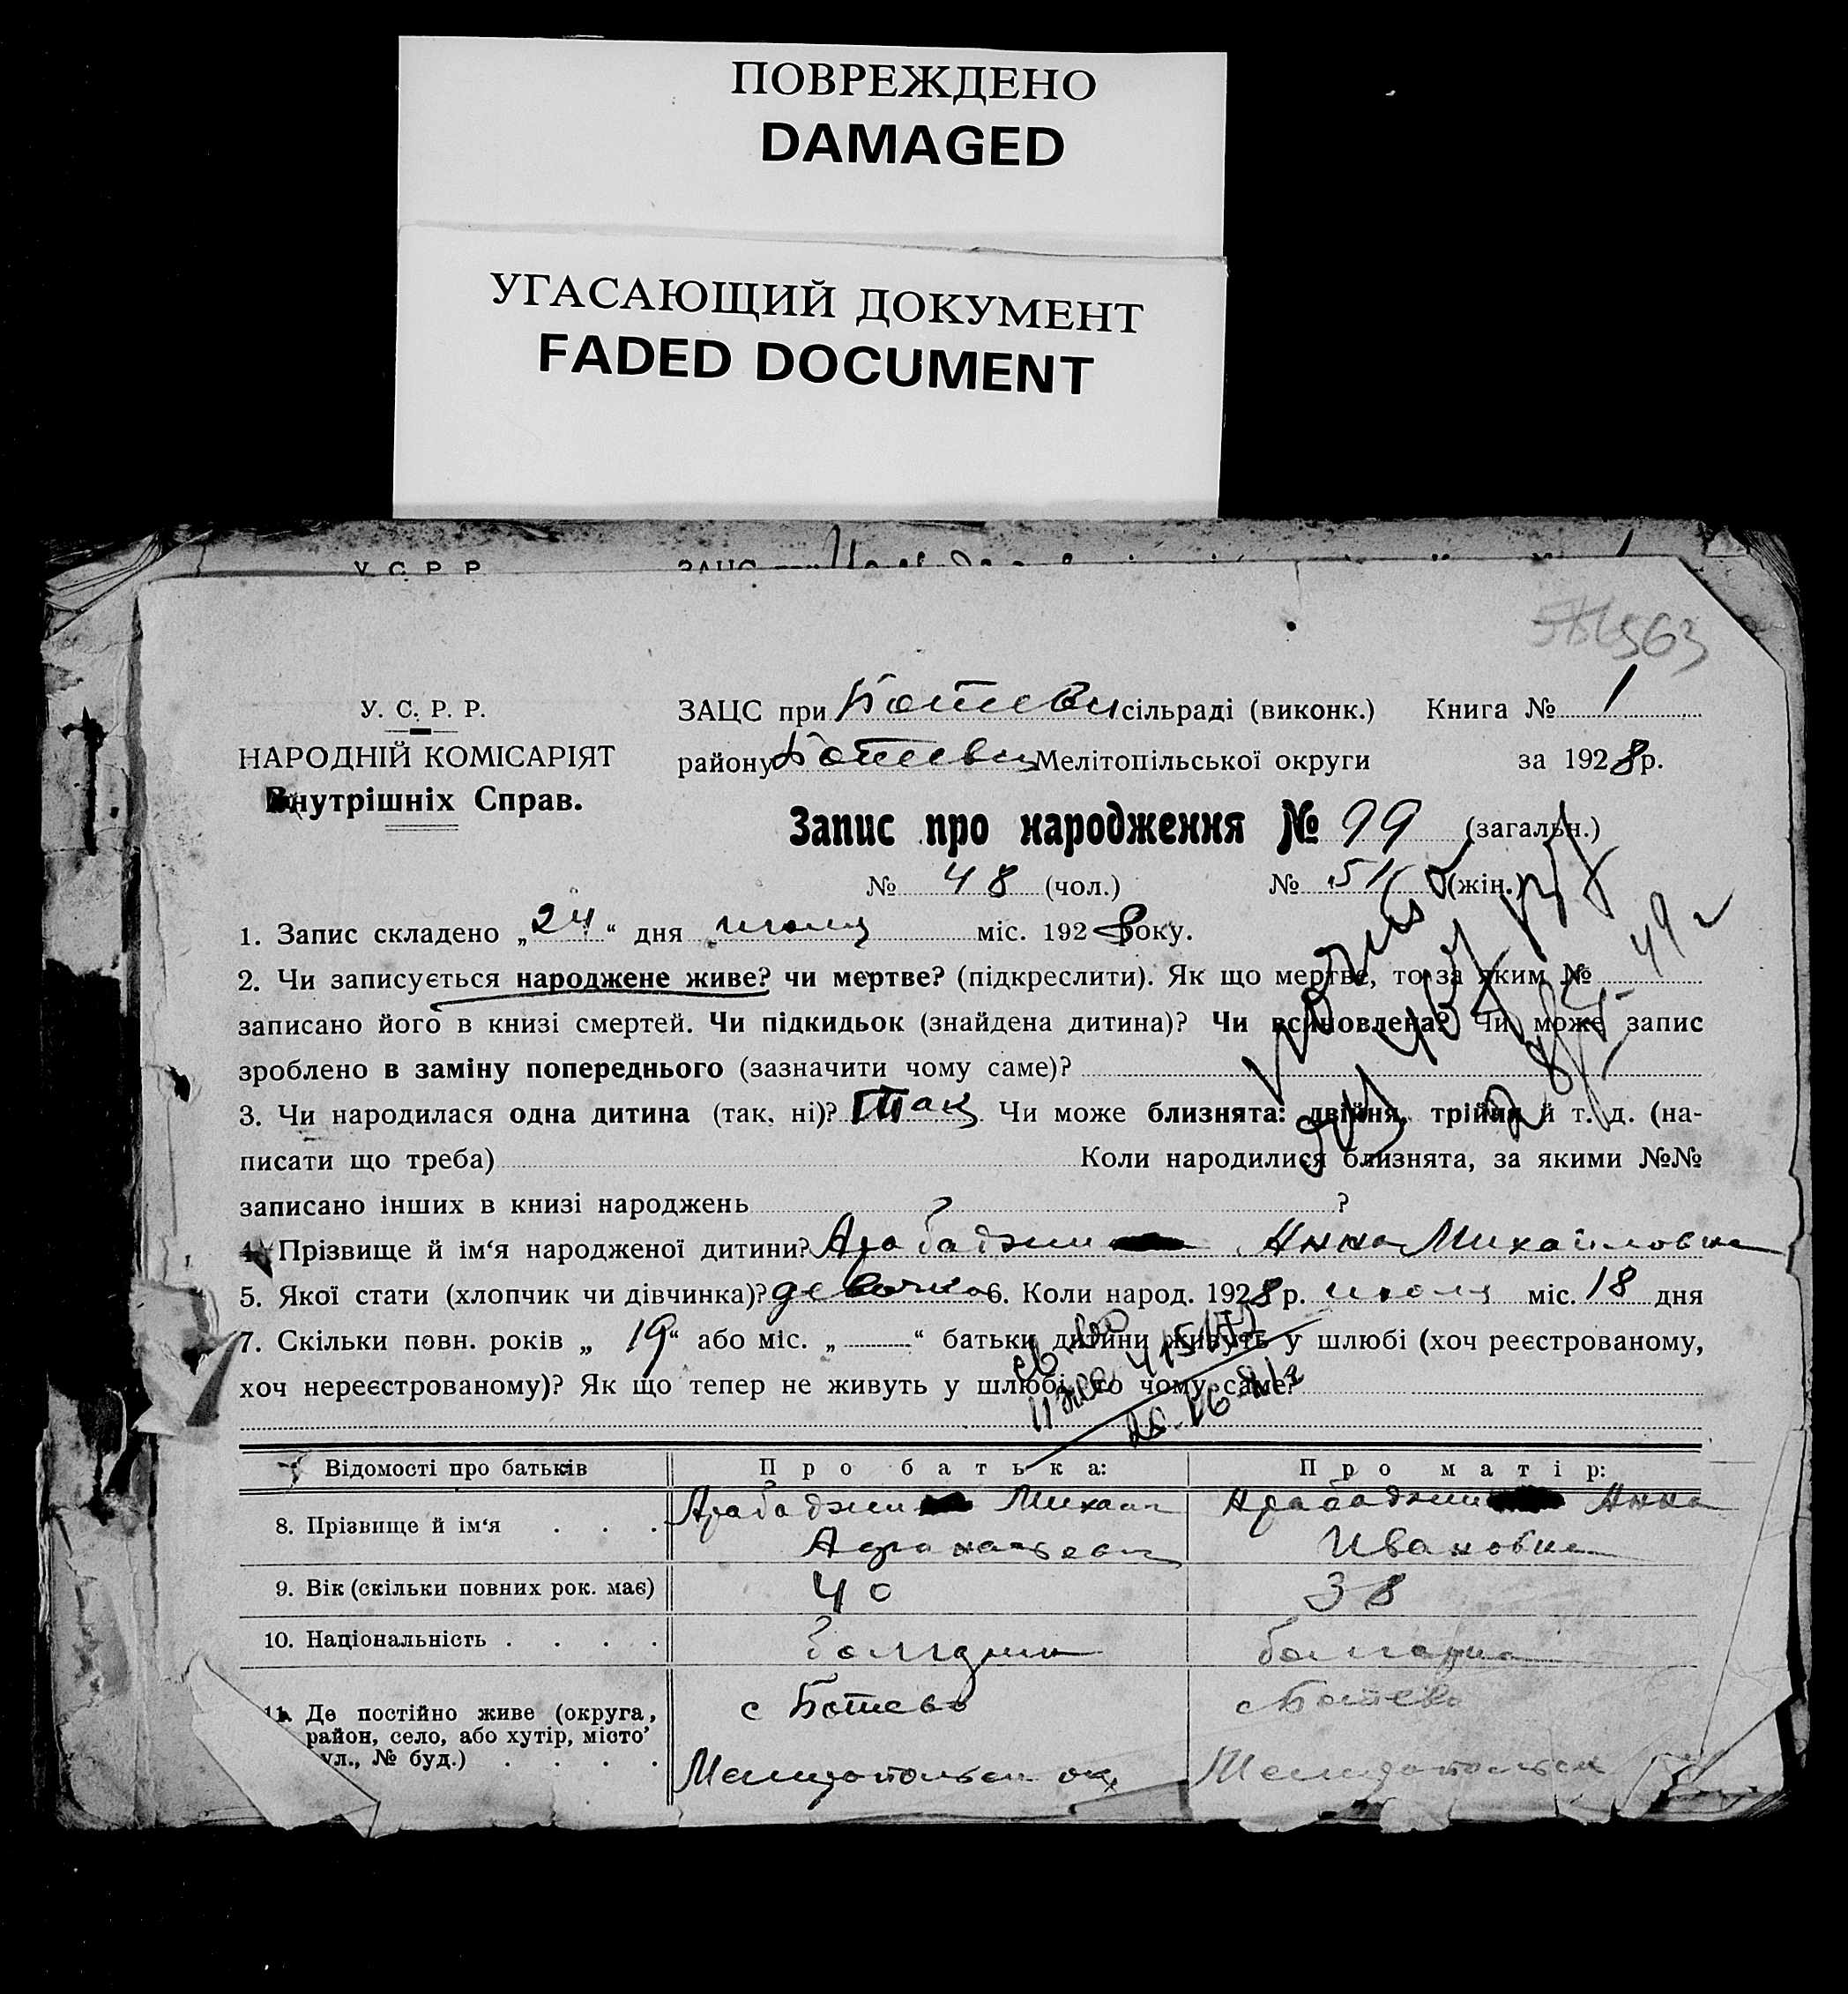 ПОВРЕЖДЕНО
DAMAGED
УГАСАЮЩИЙ ДОКУМЕНТ
FADED DOCUMENT
У. С. Р. Р. ЗАЦС 1
563
У. С. Р. Р.
НАРОДНІЙ КОМІСАРІЯТ
Внутрішніх Справ.
ЗАЦС при Ботевск сільраді (виконк.) Книга № 1
району Ботевск Мелітопільської округи за 1928 р.
Запис про народження № 99 (загальн.)
№ 48 (чол.) № 51 (жін.)
1. Запис складено „24“ дня июля міс. 1928 року.
2. Чи записується народжене живе? чи мертве? (підкреслити). Як що мертве, то за яким №
записано його в книзі смертей. Чи підкидьок (знайдена дитина)? Чи всиновлена? Чи може запис
зроблено в заміну попереднього (зазначити чому саме)?
3. Чи народилася одна дитина (так, ні)? Так Чи може близнята: двійня, трійня й т. д. (на-
писати що треба) Коли народилися близнята, за якими №№
записано інших в книзі народжень ?
4. Прізвище й ім‘я народженої дитини? Арабаджи Анна Михайловна
5. Якої стати (хлопчик чи дівчинка)? девочка 6. Коли народ. 1928 р. июля міс. 18 дня
7. Скільки повн. років „ 19 “ або міс. „ “ батьки дитини живуть у шлюбі (хоч реєстрованому,
хоч нереєстрованому)? Як що тепер не живуть у шлюбі, то чому саме?
Відомості про батьків Про батька: Про матір:
8. Прізвище й ім‘я . . . Арабаджи Михаил Афанасьевич Арабаджи Анна Ивановна
9. Вік (скільки повних рок. має) 40 38
10. Національність . . . . болгарин болгарка
11. Де постійно живе (округа, с Ботево с Ботево
район, село, або хутір, місто’
ул., № буд.) . . . . Мелитопольск окр Мелитопольск